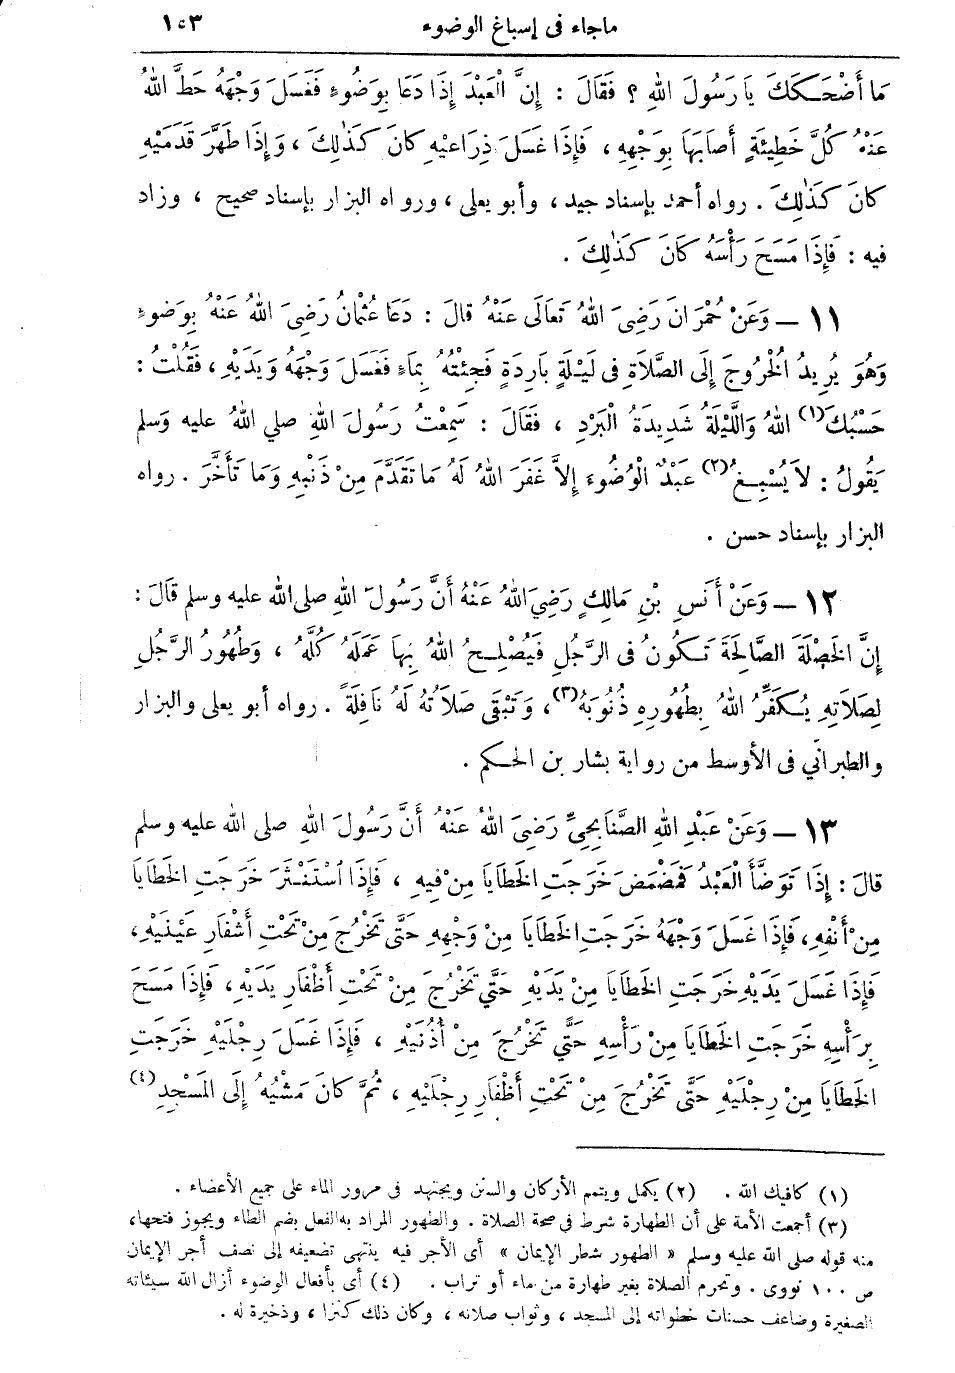 ماجاء فى إسباغ الوضوء ١٥٣
مَا أَضْحَكَكَ يَا رَسُولَ اللهِ ؟ فَقَالَ : إِنَّ الْعَبْدَ إِذَا دَعَا بِوَضُوءٍ فَغَسَلَ وَجْهَهُ حَطَّ اللهُ
عَنْهُ كُلَّ خَطِيئَةٍ أَصَابَهَا بِوَجْهِهِ ، فَإِذَا غَسَلَ ذِرَاعَيْهِ كَانَ كَذٰلِكَ ، وَإِذَا طَهَّرَ قَدَمَيْهِ
كَانَ كَذٰلِكَ . رواه أحمد بإسناد جيد ، وأبو يعلى ، ورواه البزار بإسناد صحيح ، وزاد
فيه : فَإِذَا مَسَحَ رَأْسَهُ كَانَ كَذٰلِكَ .
١١ — وَعَنْ حُمْرَانَ رَضِيَ اللهُ تَعَالَى عَنْهُ قالَ : دَعَا عُثْمَانُ رَضِيَ اللهُ عَنْهُ بِوَضُوءٍ
وَهُوَ يُرِيدُ الْخُرُوجَ إِلَى الصَّلاَةِ فِى لَيْلَةٍ بَارِدَةٍ فَجِئْتُهُ بِمَاءٍ فَغَسَلَ وَجْهَهُ وَيَدَيْهِ ، فَقُلْتُ :
حَسْبُكَ (١) اللهُ وَاللَّيْلَةُ شَدِيدَةُ الْبَرْدِ ، فَقَالَ : سَمِعْتُ رَسُولَ اللهِ صلى اللهُ عليه وَسلم
يَقُولُ : لاَ يُسْبِغُ (٢) عَبْدٌ الْوُضُوءَ إِلاَّ غَفَرَ اللهُ لَهُ مَا تَقَدَّمَ مِنْ ذَنْبِهِ وَمَا تَأَخَّرَ . رواه
البزار بإسناد حسن .
١٢ — وَعَنْ أَنَسِ بْنِ مَالِكٍ رَضِيَ اللهُ عَنْهُ أَنَّ رَسُولَ اللهِ صلى الله عليه وسلم قَالَ :
إِنَّ الْخَصْلَةَ الصَّالِحَةَ تَكُونُ فِى الرَّجُلِ فَيُصْلِحُ اللهُ بِهَا عَمَلَهُ كُلَّهُ ، وَطُهُورُ الرَّجُلِ
لِصَلاَتِهِ يُكَفِّرُ اللهُ بِطُهُورِهِ ذُنُوبَهُ (٣) ، وَتَبْقَى صَلاَتُهُ لَهُ نَافِلَةً . رواه أبو يعلى والبزار
والطبرانّي فى الأوسط من رواية بشار بن الحكم .
١٣ — وَعَنْ عَبْدِ اللهِ الصُّنَابِحِيِّ رَضِيَ اللهُ عَنْهُ أَنَّ رَسُولَ اللهِ صلى الله عليه وسلم
قالَ : إِذَا تَوَضَّأَ الْعَبْدُ فَمَضْمَضَ خَرَجَتِ الْخَطَايَا مِنْ فِيهِ ، فَإِذَا اسْتَنْثَرَ خَرَجَتِ الْخَطَايَا
مِنْ أَنْفِهِ ، فَإِذَا غَسَلَ وَجْهَهُ خَرَجَتِ الْخَطَايَا مِنْ وَجْهِهِ حَتَّى تَخْرُجَ مِنْ تَحْتِ أَشْفَارِ عَيْنَيْهِ ،
فَإِذَا غَسَلَ يَدَيْهِ خَرَجَتِ الْخَطَايَا مِنْ يَدَيْهِ حَتَّى تَخْرُجَ مِنْ تَحْتِ أَظْفَارِ يَدَيْهِ ، فَإِذَا مَسَحَ
بِرَأْسِهِ خَرَجَتِ الْخَطَايَا مِنْ رَأْسِهِ حَتَّى تَخْرُجَ مِنْ أُذُنَيْهِ ، فَإِذَا غَسَلَ رِجْلَيْهِ خَرَجَتِ
الْخَطَايَا مِنْ رِجْلَيْهِ حَتَّى تَخْرُجَ مِنْ تَحْتِ أَظْفَارِ رِجْلَيْهِ ، ثُمَّ كَانَ مَشْيُهُ إِلَى الْمَسْجِدِ (٤)
(١) كافيك الله . (٢) يكمل ويتمم الأركان والسنن ويجتهد فى مرور الماء على جميع الأعضاء .
(٣) أجمعت الأمة على أن الطهارة شرط فى صحة الصلاة . والطهور المراد به الفعل بضم الطاء ويجوز فتحها،
منه قوله صلى الله عليه وسلم « الطهور شطر الإيمان » أى الأجر فيه ينتهى تضعيفه إلى نصف أجر الإيمان
ص ١٠٠ نووى . وتحرم الصلاة بغير طهارة من ماء أو تراب . (٤) أى بأفعال الوضوء أزال الله سيئاته
الصغيرة وضاعف حسنات خطواته إلى المسجد ، وثواب صلاته ، وكان ذلك كنزا ، وذخيرة له .